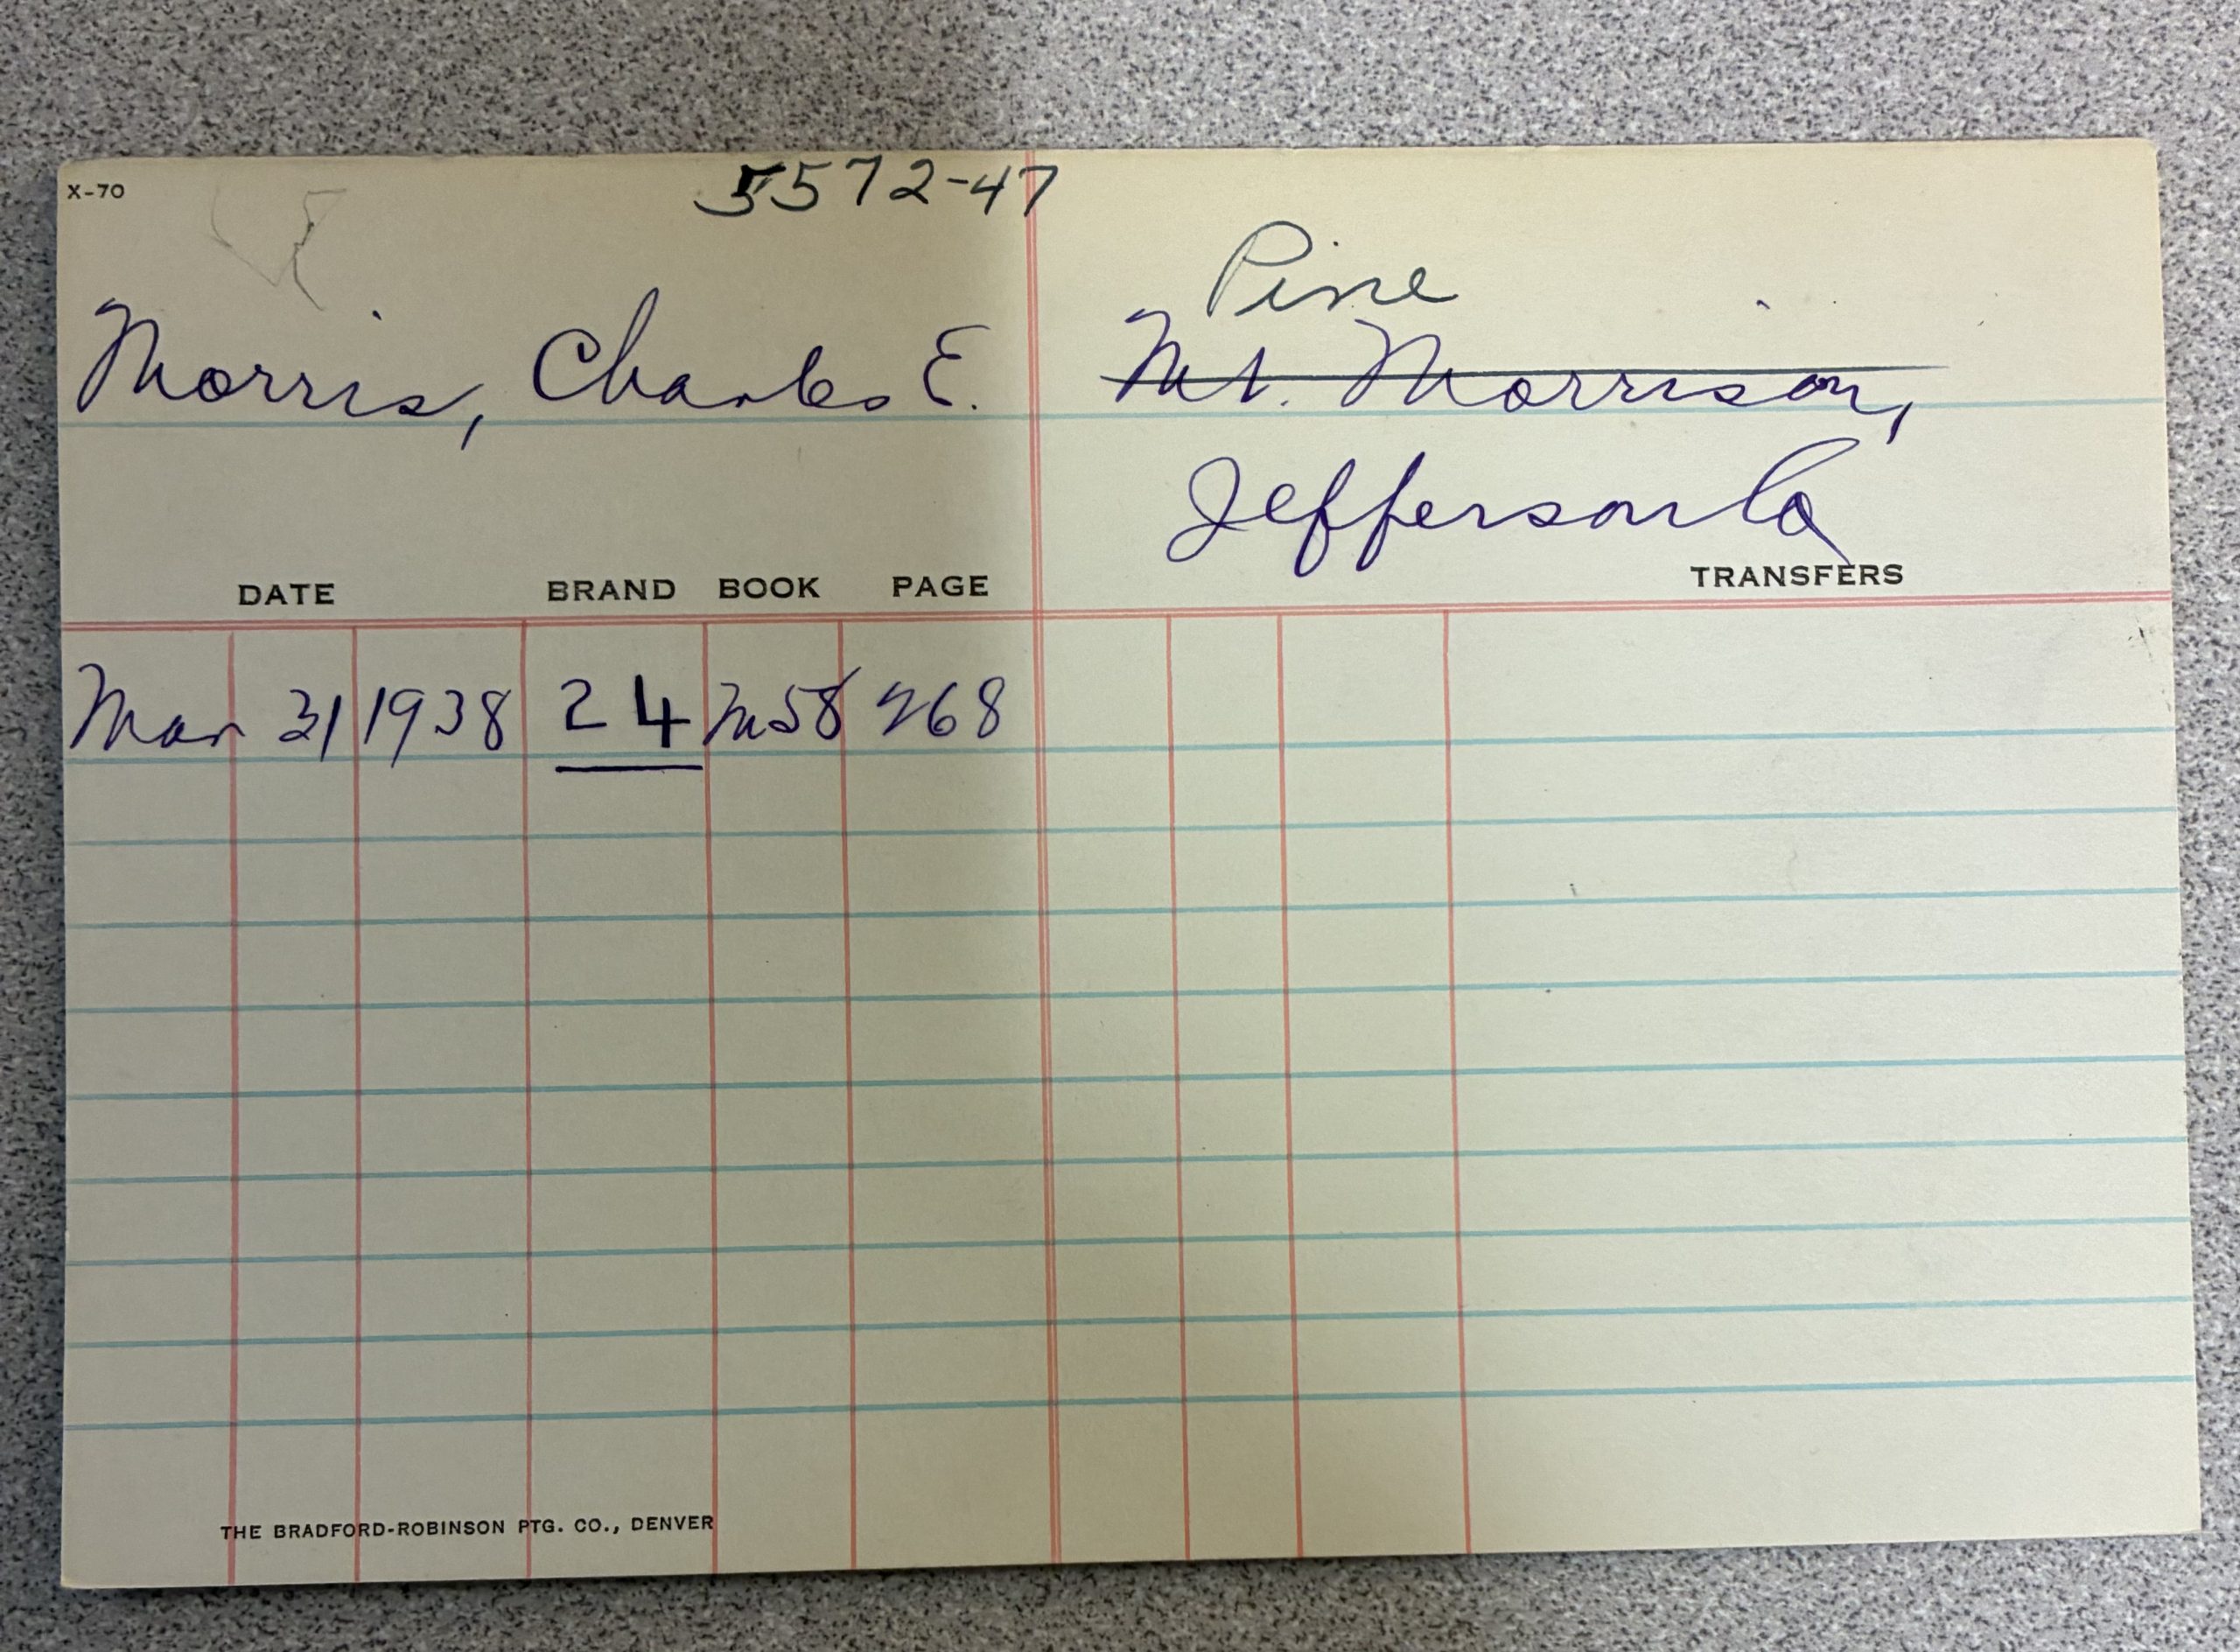 X-70
5572-47
Pine
Morris, Charles E.
Mt. Morrison,
Jefferson Co
DATE BRAND BOOK PAGE TRANSFERS
Mar 31 1938 24 M58 268
THE BRADFORD-ROBINSON PTG. CO., DENVER